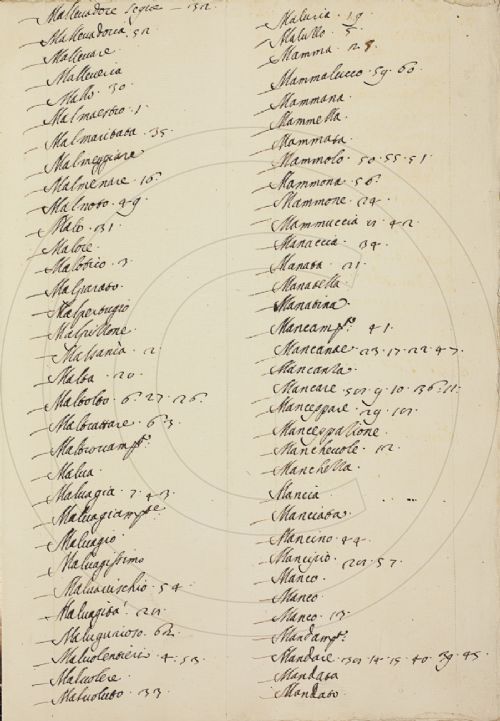 Mallevadore segue
Mallevadoria . 52
Mallevare
Malleveria
Mallo . 30 .
Malmaestro . 1 .
Malmaritata . 35 .
Malmeggiare
Malmenare . 16 .
Malnoto . 49 .
Malo . 31 .
Malore .
Malotico . 3 .
Malparato .
Malpertugio
Malpillone .
Malsanìa . 2 .
Malta . 20 .
Maltolto . 6 . 27 . 26 .
Maltrattare . 63 .
Malva .
Malvagia . 7 . 43 .
Malvagiam.te
Malvagio
Malvagissimo
Malvavischio . 54 .
Malvagità .
Malvolentieri . 4 . 53 .
Malvolere .
Malvoluto . 33 .
Maluria . 19
Malullo . 5 .
Mamma . 2 . 5 .
Mammalucco . 59 . 60 .
Mammana .
Mammella .
Mammata .
Mammolo . 50 . 55 . 51 .
Mammona . 56 .
Mammone . 24 .
Mammuccia . 42 .
Manaccia . 34 .
Manata . 21 .
Manatella .
Manatina .
Mancam.to . 41 .
Mancante . 23 . 17 . 22 . 47 .
Mancanza
Mancare . 9 . 10 . 36 . 11 .
Manceppare . 29 .
Manceppazione .
Manchevole . 12 .
Manchezza .
Mancia
Manciata .
Mancino . 44 .
Mancipio . 57 .
Manco .
Manco .
Manco . 17 .
Mandam.to
Mandare . 14 . 15 . 40 . 39 . 45 .
Mandata
Mandato